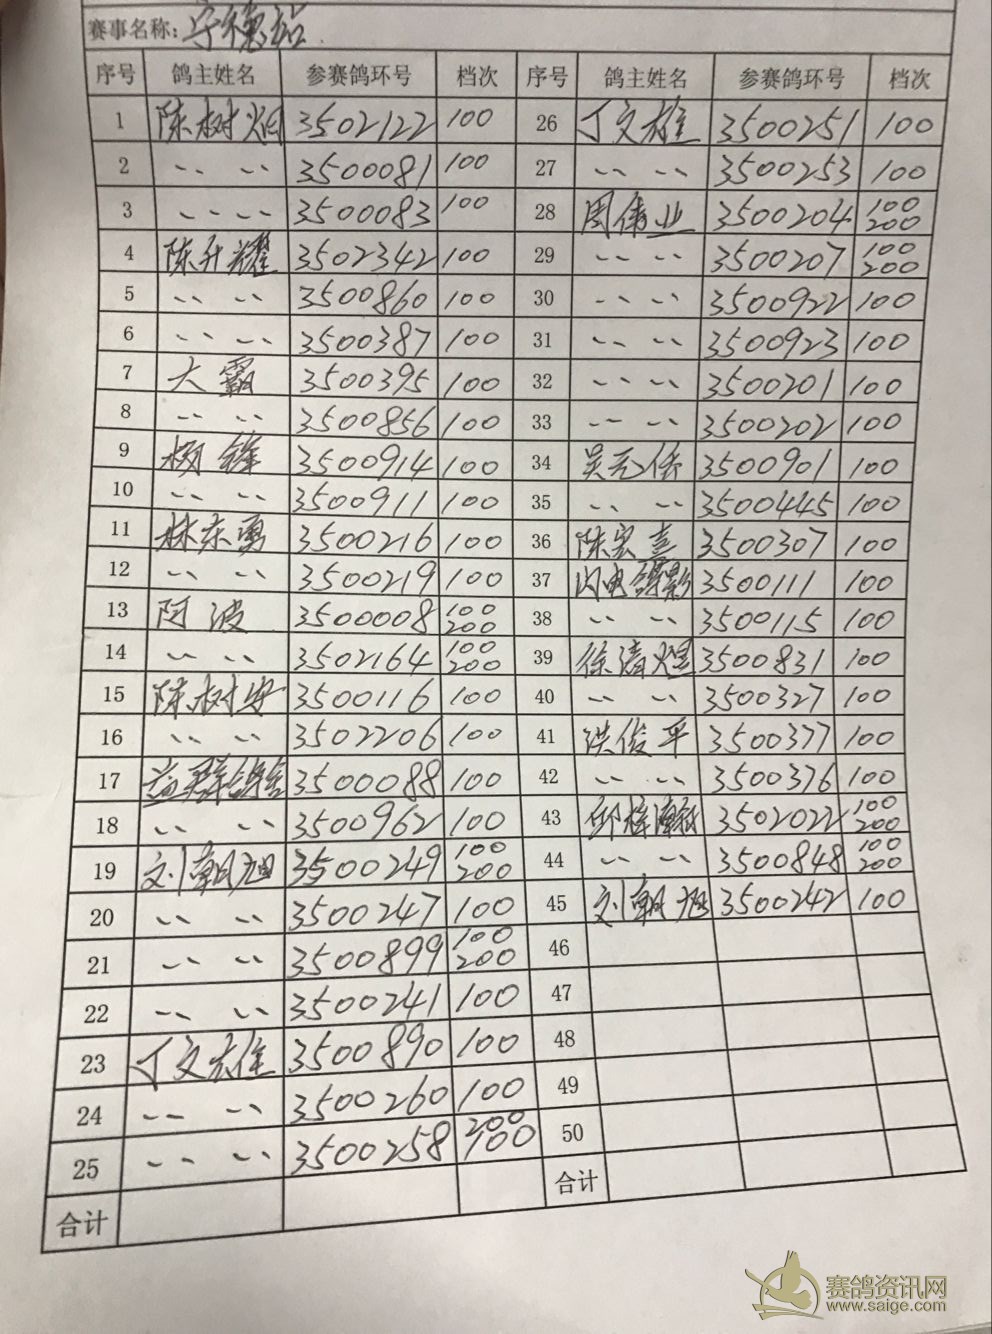 赛事名称: 宁德站
序号 鸽主姓名 参赛鸽环号 档次 序号 鸽主姓名 参赛鸽环号 档次
1 陈树炯 3502122 100 26 丁文雄 3500251 100
2 〃 〃 3500081 100 27 〃 〃 3500253 100
3 〃 〃 3500083 100 28 周伟业 3500204 100 200
4 陈升耀 3502342 100 29 〃 〃 3500207 100 200
5 〃 〃 3500860 100 30 〃 〃 3500922 100
6 〃 〃 3500387 100 31 〃 〃 3500923 100
7 大霸 3500395 100 32 〃 〃 3500201 100
8 〃 〃 3500856 100 33 〃 〃 3500202 100
9 杨锋 3500914 100 34 3500901 100
10 〃 〃 3500911 100 35 〃 〃 3500445 100
11 林东勇 3500216 100 36 陈宏喜 3500307 100
12 〃 〃 3500219 100 37 闪电鸽影 3500111 100
13 阿波 3500008 100 200 38 〃 〃 3500115 100
14 〃 〃 3502164 100 200 39 徐清煌 3500831 100
15 陈树安 3500116 100 40 〃 〃 3500327 100
16 〃 〃 3502206 100 41 洪俊平 3500377 100
17 益群鸽舍 3500088 100 42 〃 〃 3500376 100
18 〃 〃 3500962 100 43 3502022 100 200
19 刘朝旭 3500249 100 200 44 〃 〃 3500848 100 200
20 〃 〃 3500247 100 45 刘朝旭 3500242 100
21 〃 〃 3500899 100 200 46
22 〃 〃 3500241 100 47
23 丁文雄 3500890 100 48
24 〃 〃 3500260 100 49
25 〃 〃 3500258 200 100 50
合计 合计
赛鸽资讯网
www.saige.com